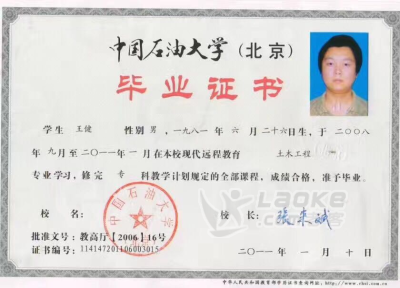 中国石油大学（北京）
毕业证书
学生 王健 性别 男，一九八一年 六 月 二十六日生，于 二〇〇八
年 九月至二〇一一年 一 月在本校现代远程教育 土木工程
专业学习，修完 专 科教学计划规定的全部课程，成绩合格，准予毕业。
校 名： 校 长：
中国石油大学
批准文号：教高厅【2006】16号
证书编号：114147201106003015
二〇一一年 一 月 十 日
Laoke
中华人民共和国教育部学历证书查询网址：http://www.chsi.com.cn